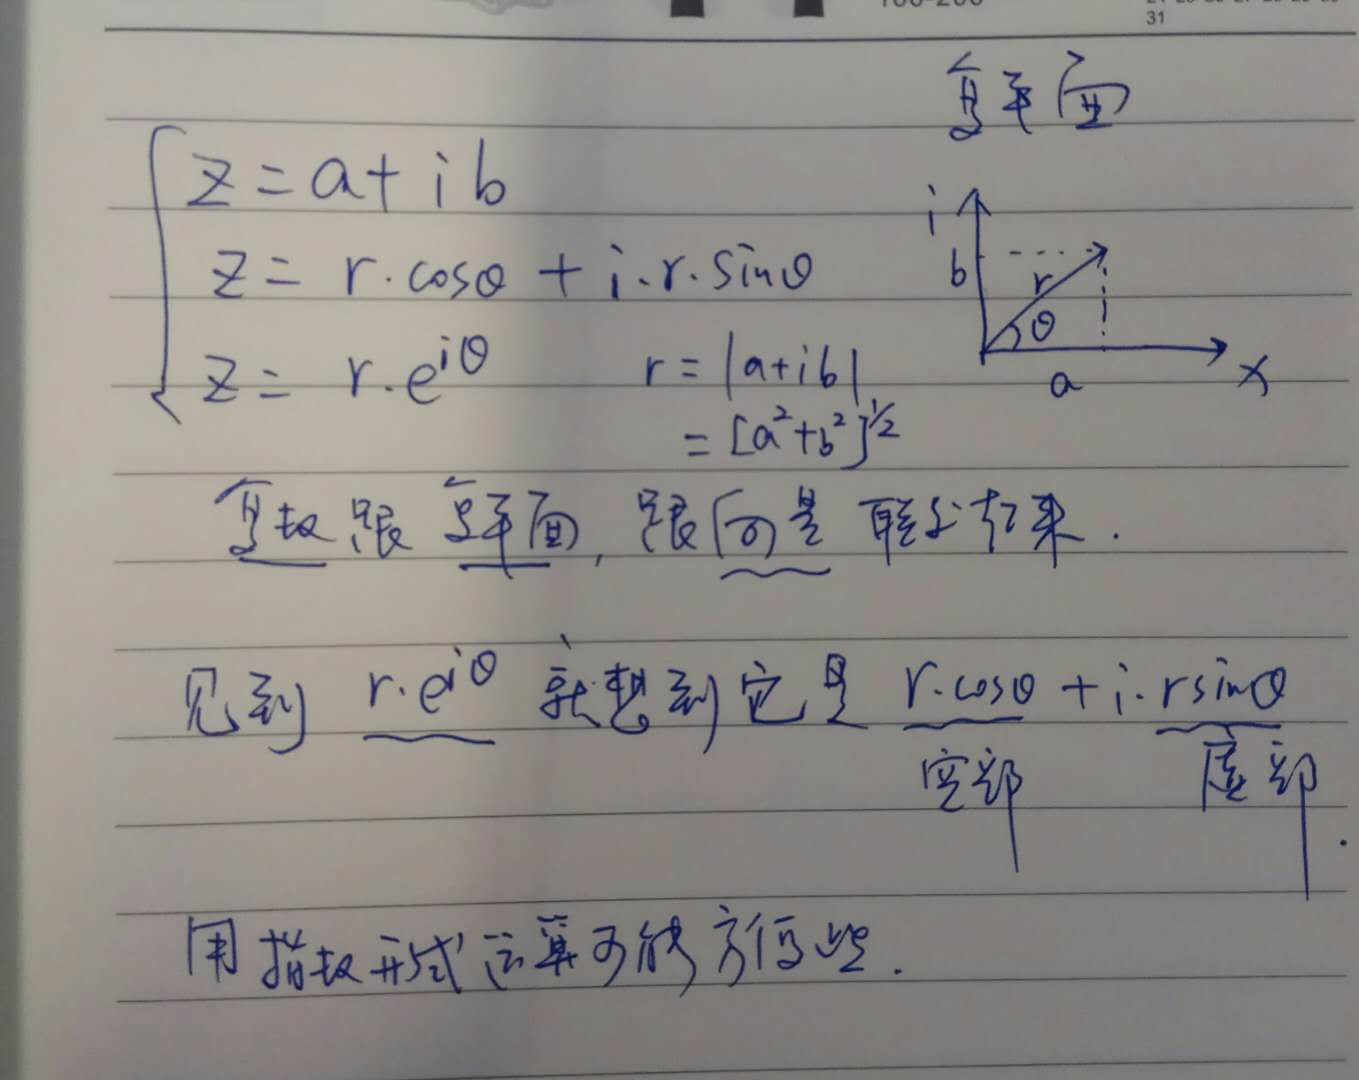 31
复平面
z = a + i b
z = r · cosθ + i · r · sinθ
z = r · e^{iθ}
r = |a+ib|
= [a²+b²]^{1/2}
i
b
r
θ
a
x
复数跟复平面, 跟向量联系起来.
见到 r · e^{iθ} 就想到它是 r · cosθ + i · r sinθ
实部 虚部.
用指数形式运算可能方便些.